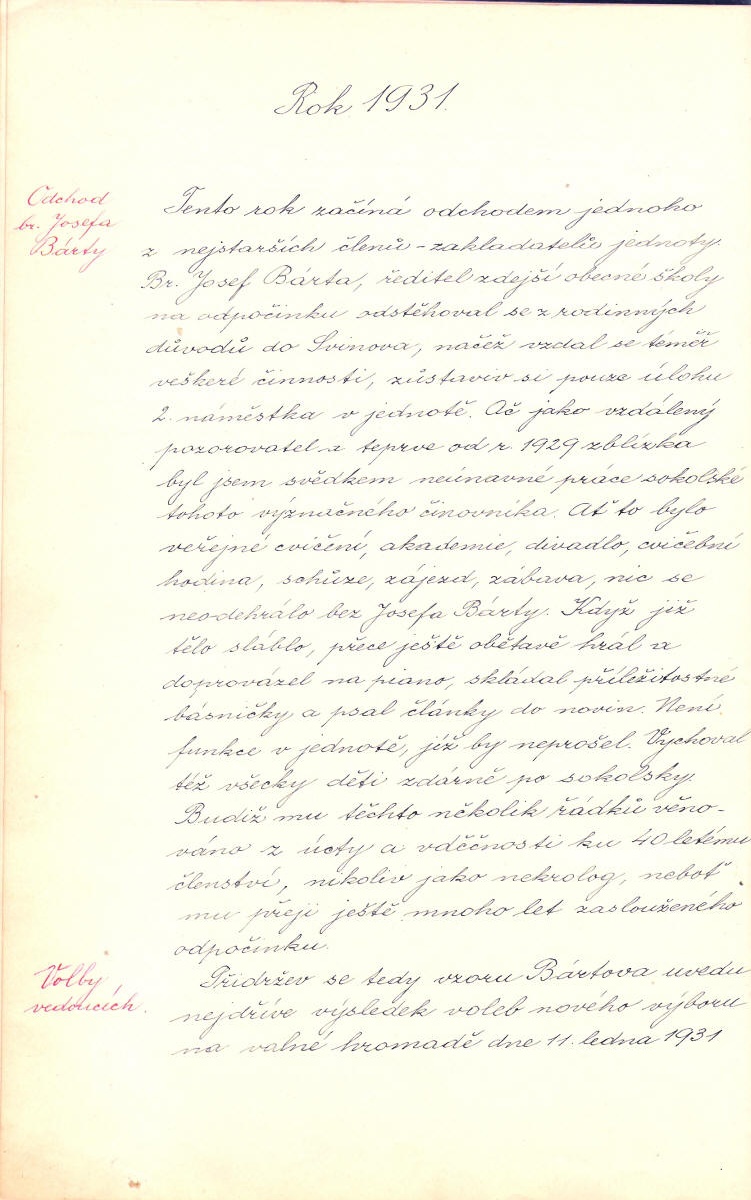 Rok 1931.
Odchod
br. Josefa
Bárty
Tento rok začíná odchodem jednoho
z nejstarších členů – zakladatelů jednoty.
Br. Josef Bárta, ředitel zdejší obecné školy
na odpočinku odstěhoval se z rodinných
důvodů do Svinova, načež vzdal se téměř
veškeré činnosti, zůstaviv si pouze úlohu
2. náměstka v jednotě. Ač jako vzdálený
pozorovatel a teprve od r. 1929 zblízka
byl jsem svědkem neúnavné práce sokolské
tohoto význačného činovníka. Ať to bylo
veřejné cvičení, akademie, divadlo, cvičební
hodina, schůze, zájezd, zábava, nic se
neodehrálo bez Josefa Bárty. Když již
tělo sláblo, přece ještě obětavě hrál a
doprovázel na piano, skládal příležitostné
básničky a psal články do novin. Není
funkce v jednotě, již by neprošel. Vychoval
též všecky děti zdárně po sokolsky.
Budiž mu těchto několik řádků věno-
váno z úcty a vděčnosti ku 40 letému
členství, nikoliv jako nekrolog, neboť
mu přeji ještě mnoho let zaslouženého
odpočinku.
Volby
vedoucích.
Přidržev se tedy vzoru Bártova uvedu
nejdříve výsledek voleb nového výboru
na valné hromadě dne 11. ledna 1931